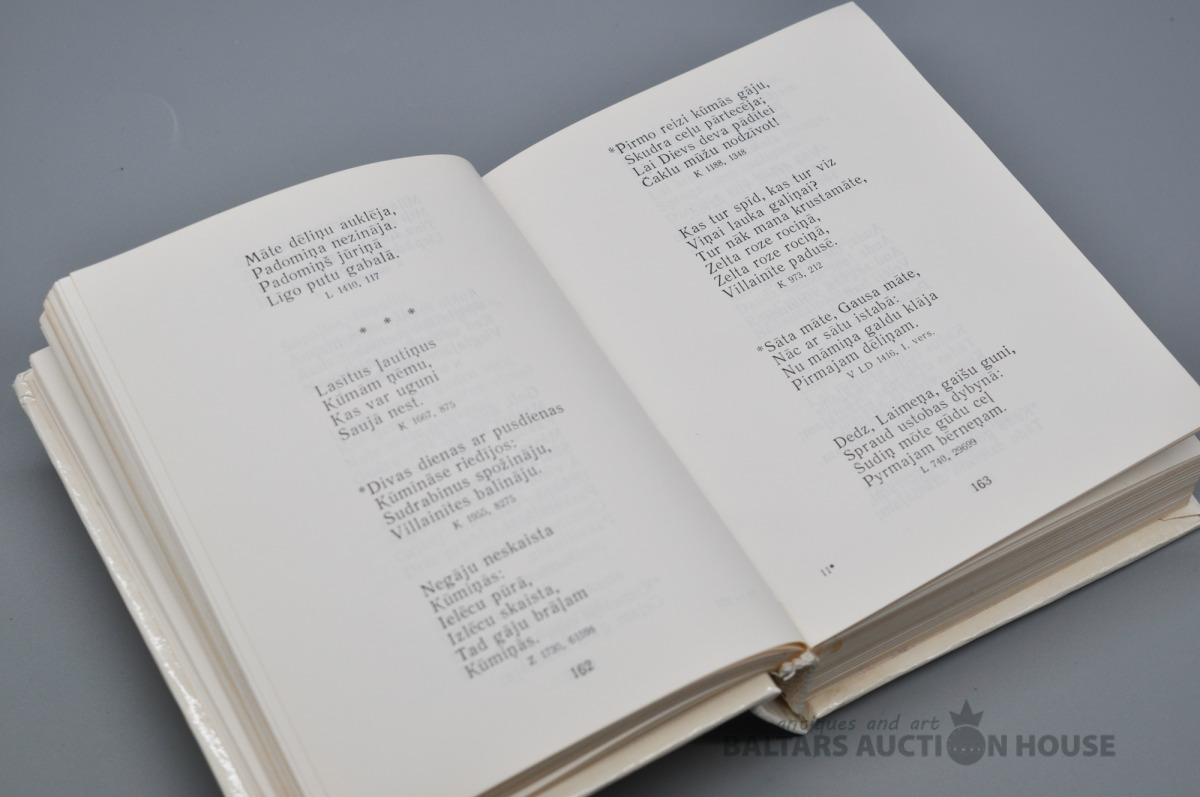 Māte dēliņu auklēja,
Padomiņa nezināja.
Padomiņš jūriņā
Līgo putu gabalā.
L 1410, 117
* * *
Lasītus ļautiņus
Kūmām ņēmu,
Kas var uguni
Saujā nest.
K 1667, 875
*Divas dienas ar pusdienas
Kūmināse riedījos:
Sudrabinus spožināju,
Villainītes balināju.
K 1955, 8275
Negāju neskaista
Kūmiņās:
Ielēcu pūrā,
Izlēcu skaista,
Tad gāju brāļam
Kūmiņās.
Z 1730, 61098
162
*Pirmo reizi kūmās gāju,
Skudra ceļu pārtecēja;
Lai Dievs deva pādītei
Čaklu mūžu nodzīvot!
K 1188, 1348
Kas tur spīd, kas tur viz
Viņai lauka galiņai?
Tur nāk mana krustamāte,
Zelta roze rociņā,
Zelta roze rociņā,
Villainīte padusē.
K 973, 212
*Sāta māte, Gausa māte,
Nāc ar sātu istabā:
Nu māmiņa galdu klāja
Pirmajam dēliņam.
V LD 1416, 1. vers.
Dedz, Laimeņa, gaišu guni,
Spraud ustobas dybynā:
Sudiņ mōte gūdu ceļ
Pyrmajam bērneņam.
L 740, 29699
163
11*
antiques and art
BALTARS AUCTION HOUSE